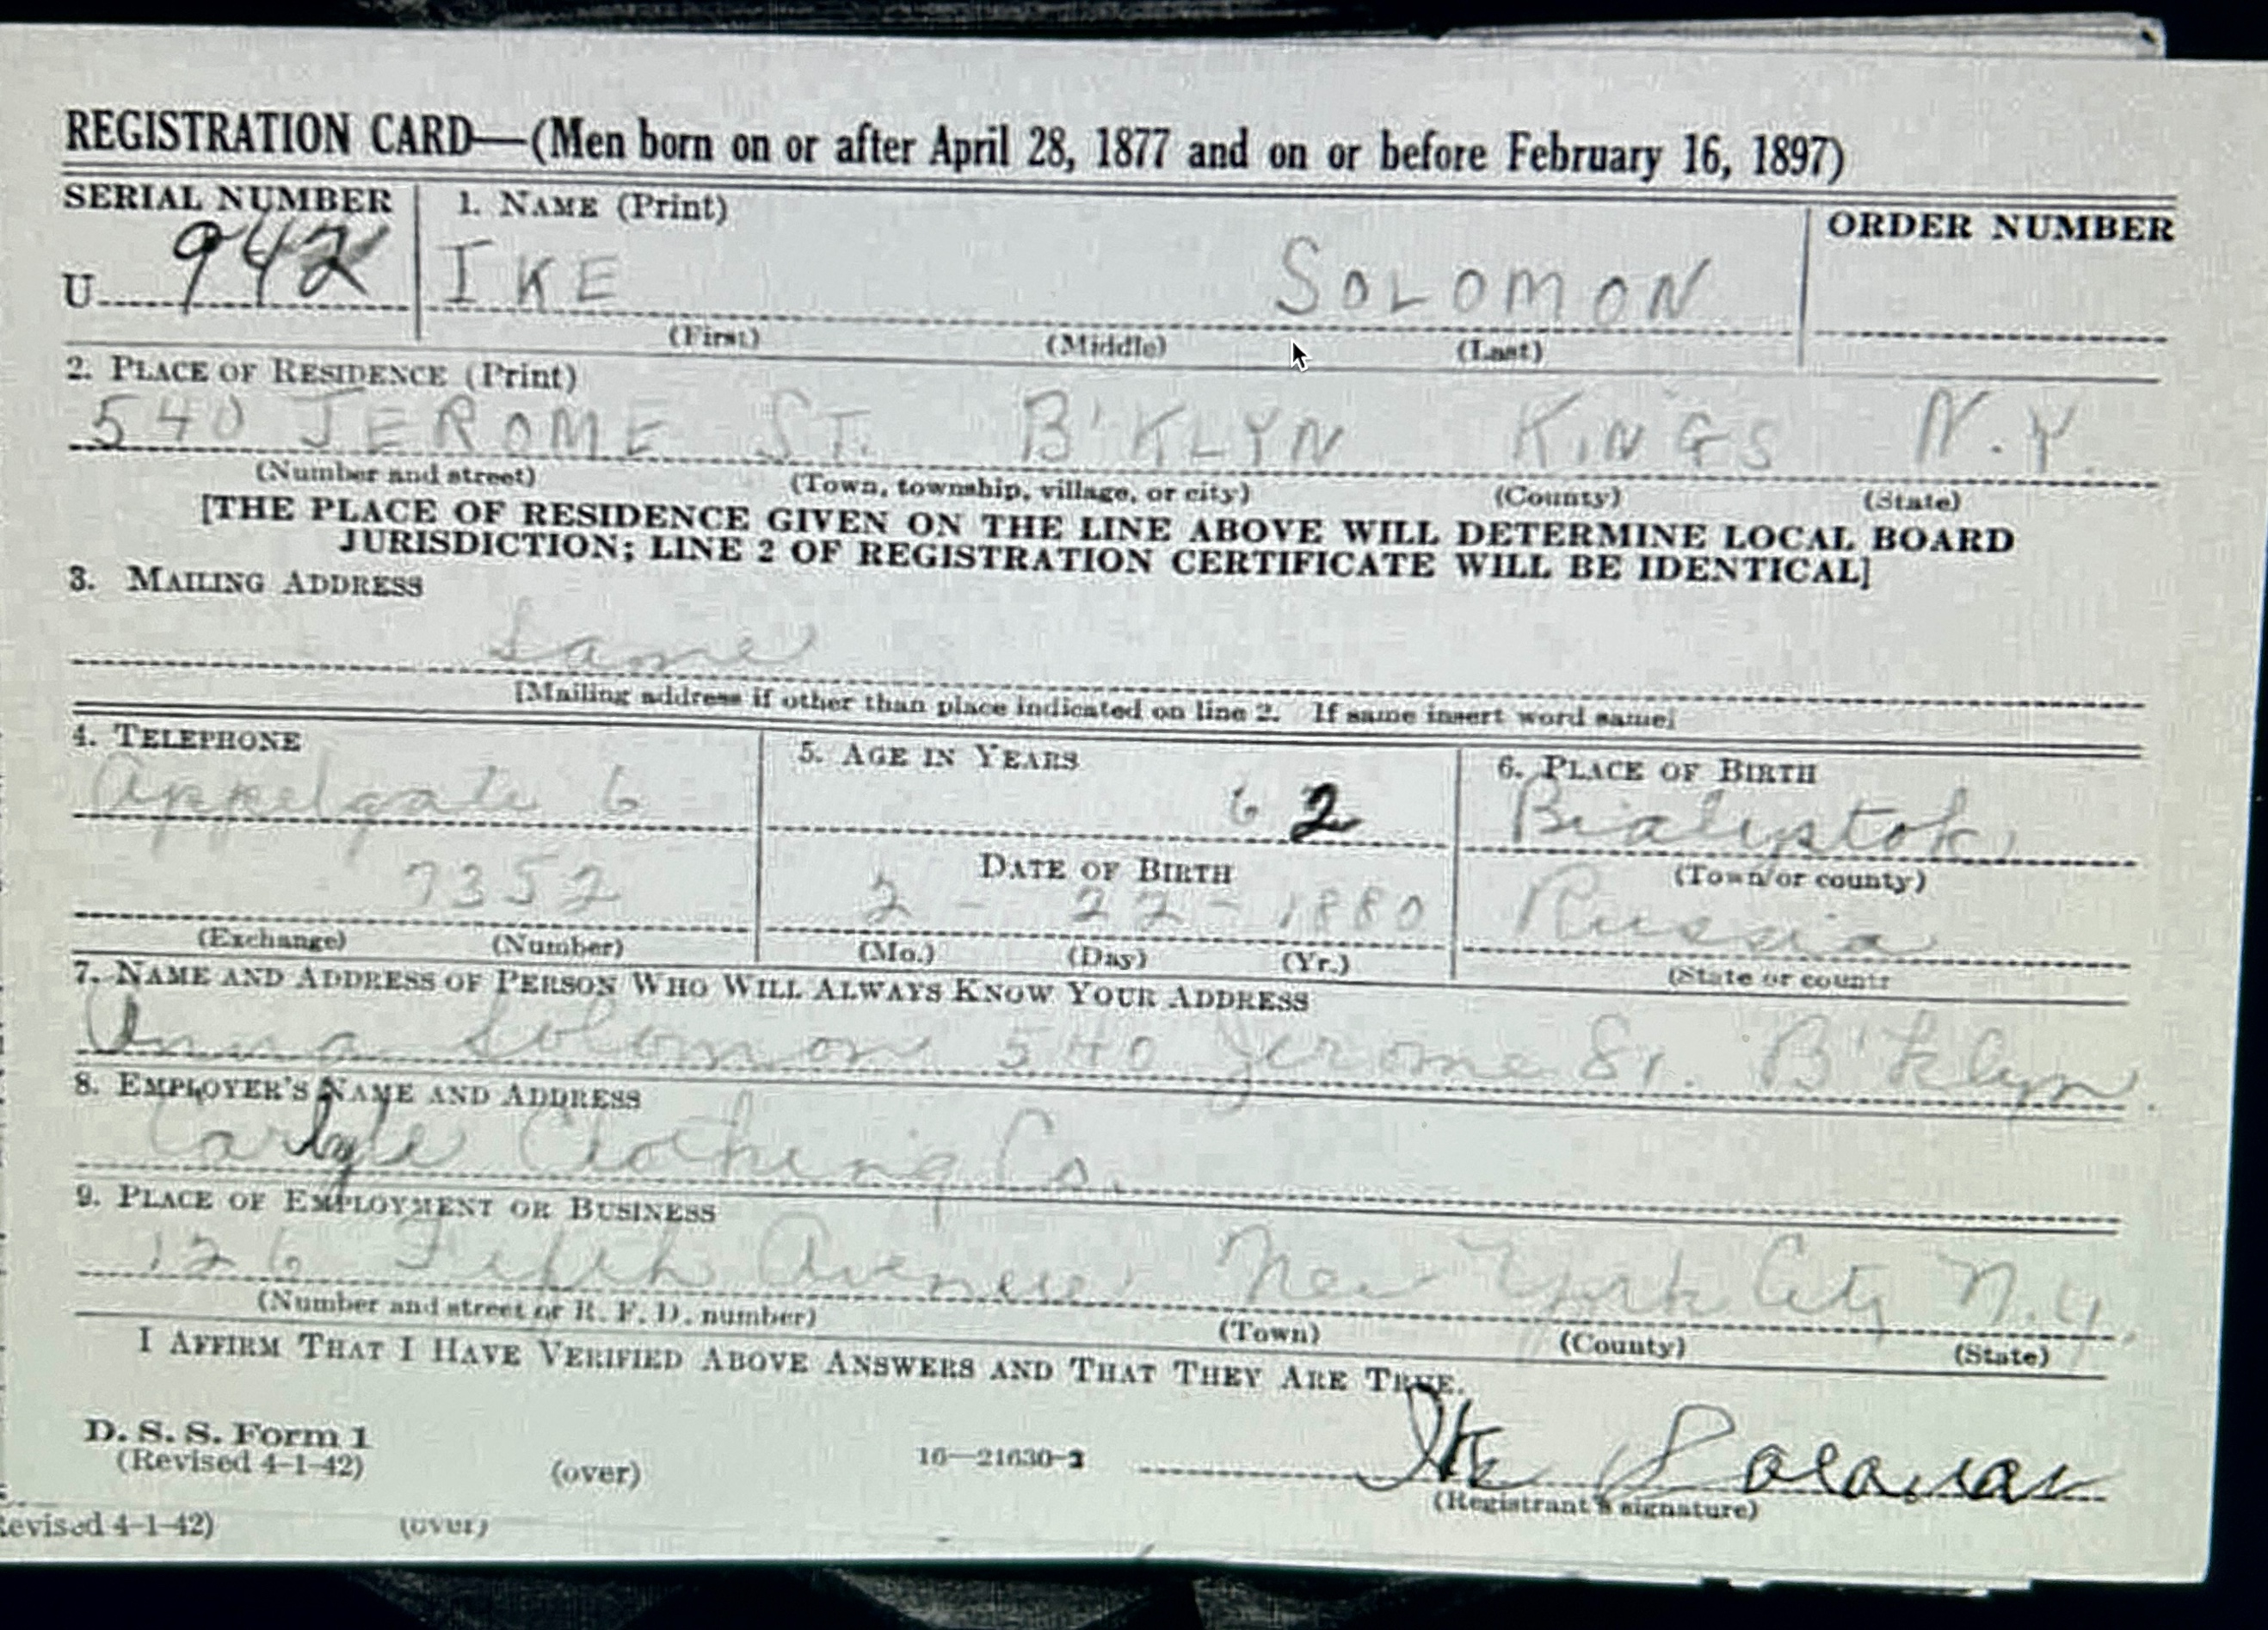 REGISTRATION CARD—(Men born on or after April 28, 1877 and on or before February 16, 1897)
SERIAL NUMBER
1. NAME (Print)
ORDER NUMBER
U 942
IKE SOLOMON
(First) (Middle) (Last)
2. PLACE OF RESIDENCE (Print)
540 JEROME ST. B'KLYN KINGS N.Y.
(Number and street) (Town, township, village, or city) (County) (State)
[THE PLACE OF RESIDENCE GIVEN ON THE LINE ABOVE WILL DETERMINE LOCAL BOARD
JURISDICTION; LINE 2 OF REGISTRATION CERTIFICATE WILL BE IDENTICAL]
3. MAILING ADDRESS
Same
[Mailing address if other than place indicated on line 2. If same insert word same]
4. TELEPHONE
5. AGE IN YEARS
6. PLACE OF BIRTH
Appelgate 6
62
Bialystok,
DATE OF BIRTH
(Town or county)
7352
2 - 22 - 1880
Russia
(Exchange) (Number)
(Mo.) (Day) (Yr.)
(State or countr
7. NAME AND ADDRESS OF PERSON WHO WILL ALWAYS KNOW YOUR ADDRESS
Anna Solomon 540 Jerome St. B'klyn.
8. EMPLOYER'S NAME AND ADDRESS
Carlyle Clothing Co.
9. PLACE OF EMPLOYMENT OR BUSINESS
126 Fifth Avenue New York City N.Y.
(Number and street or R. F. D. number) (Town) (County) (State)
I AFFIRM THAT I HAVE VERIFIED ABOVE ANSWERS AND THAT THEY ARE TRUE.
D. S. S. Form 1
(Revised 4-1-42) (over) 16—21630-2
Ike Solomon
(Registrant's signature)
evised 4-1-42) (over)